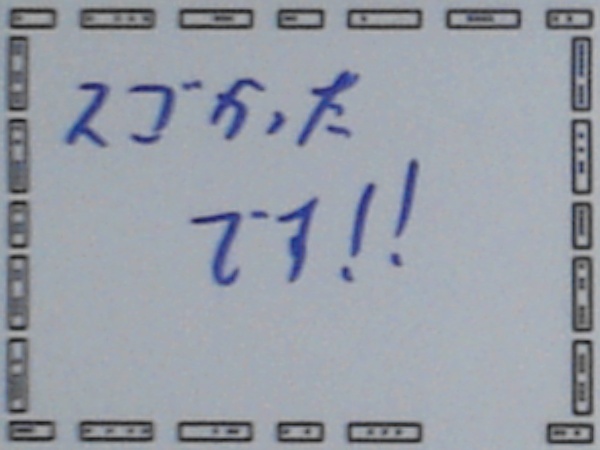 スゴかった
です!!